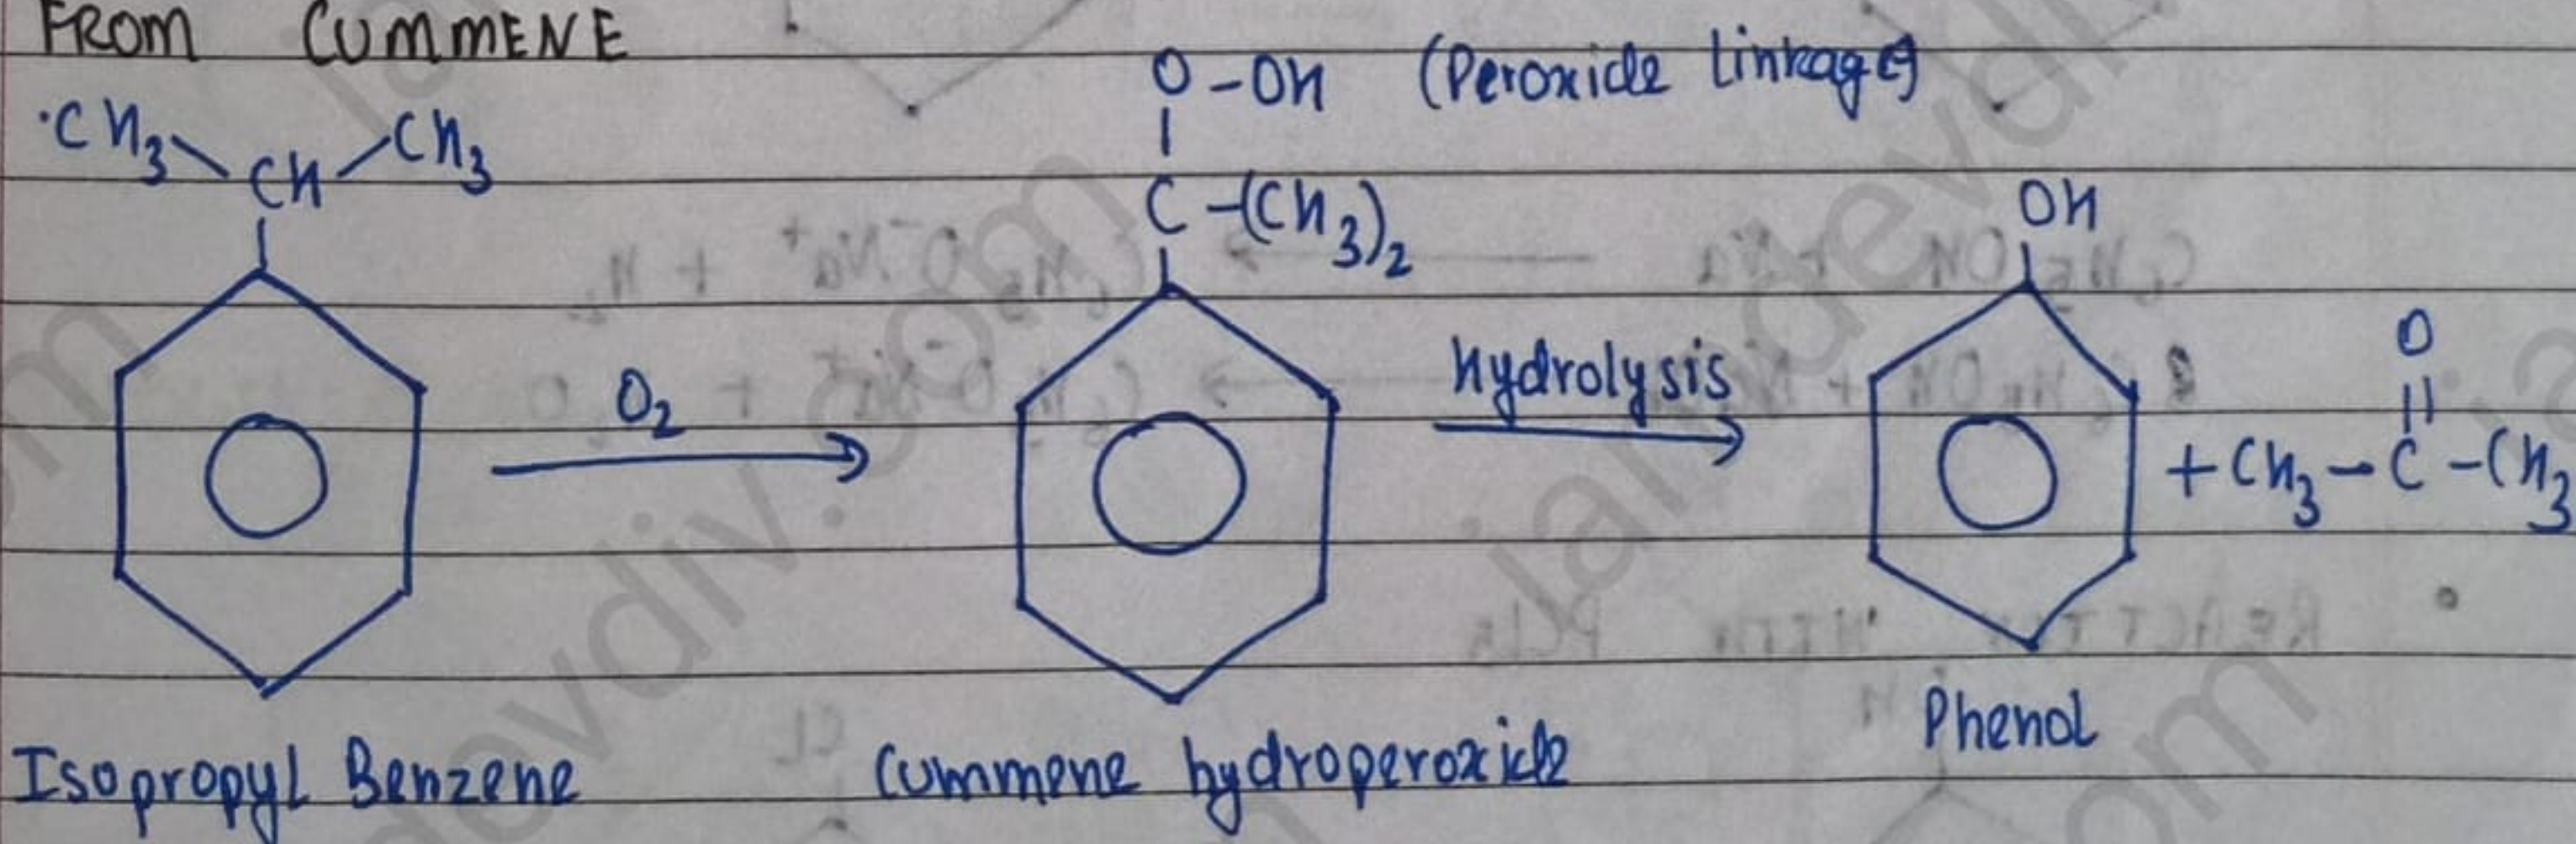 FROM CUMMENE
O-OH (Peroxide Linkage)
CH3 CH CH3
C-(CH3)2
OH
O2
hydrolysis
O
+ CH3-C-CH3
Phenol
Isopropyl Benzene
Cummene hydroperoxide